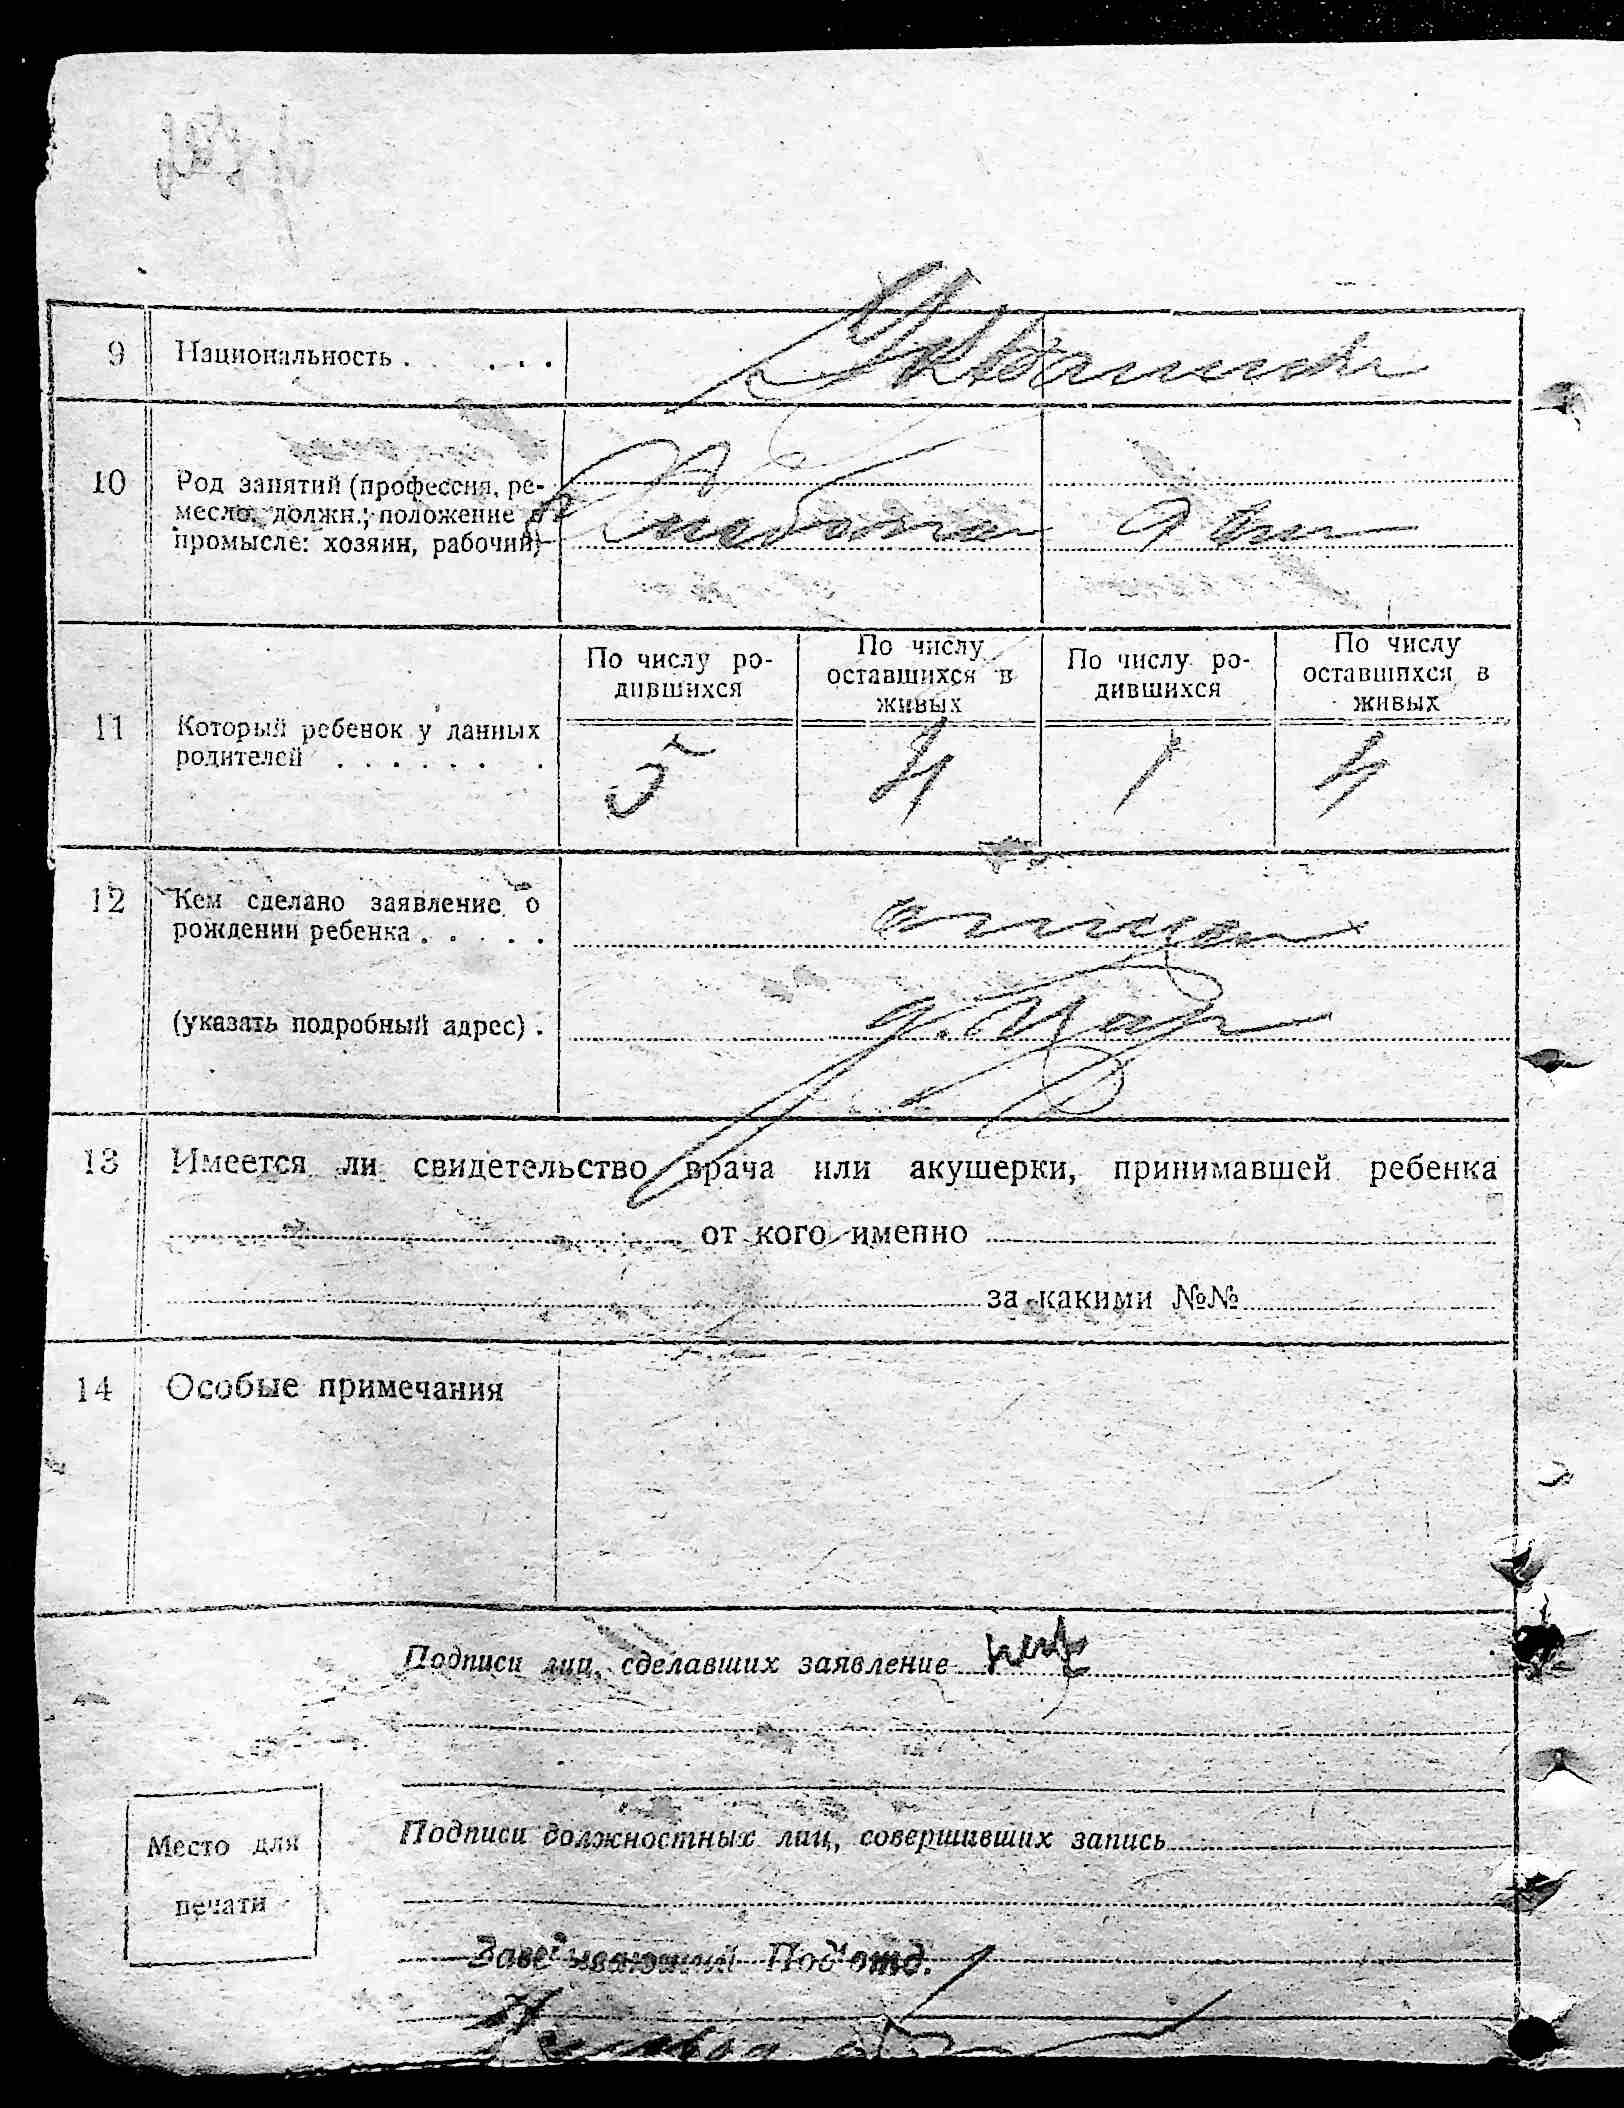 9 Национальность . . . . .
Украинцы
10 Род занятий (профессия, ре-
месло, должн.; положение в
промысле: хозяин, рабочий)
Хлебопа
По числу ро-
дившихся
По числу
оставшихся в
живых
По числу ро-
дившихся
По числу
оставшихся в
живых
11 Который ребенок у данных
родителей . . . . . . .
5 4 1 4
12 Кем сделано заявление о
рождении ребенка . . . . .
отцом
(указать подробный адрес) .
13 Имеется ли свидетельство врача или акушерки, принимавшей ребенка
от кого именно
за какими №№
14 Особые примечания
Подписи лиц, сделавших заявление
Подписи должностных лиц, совершивших запись
Место для
печати
Заведывающий Под'отд.